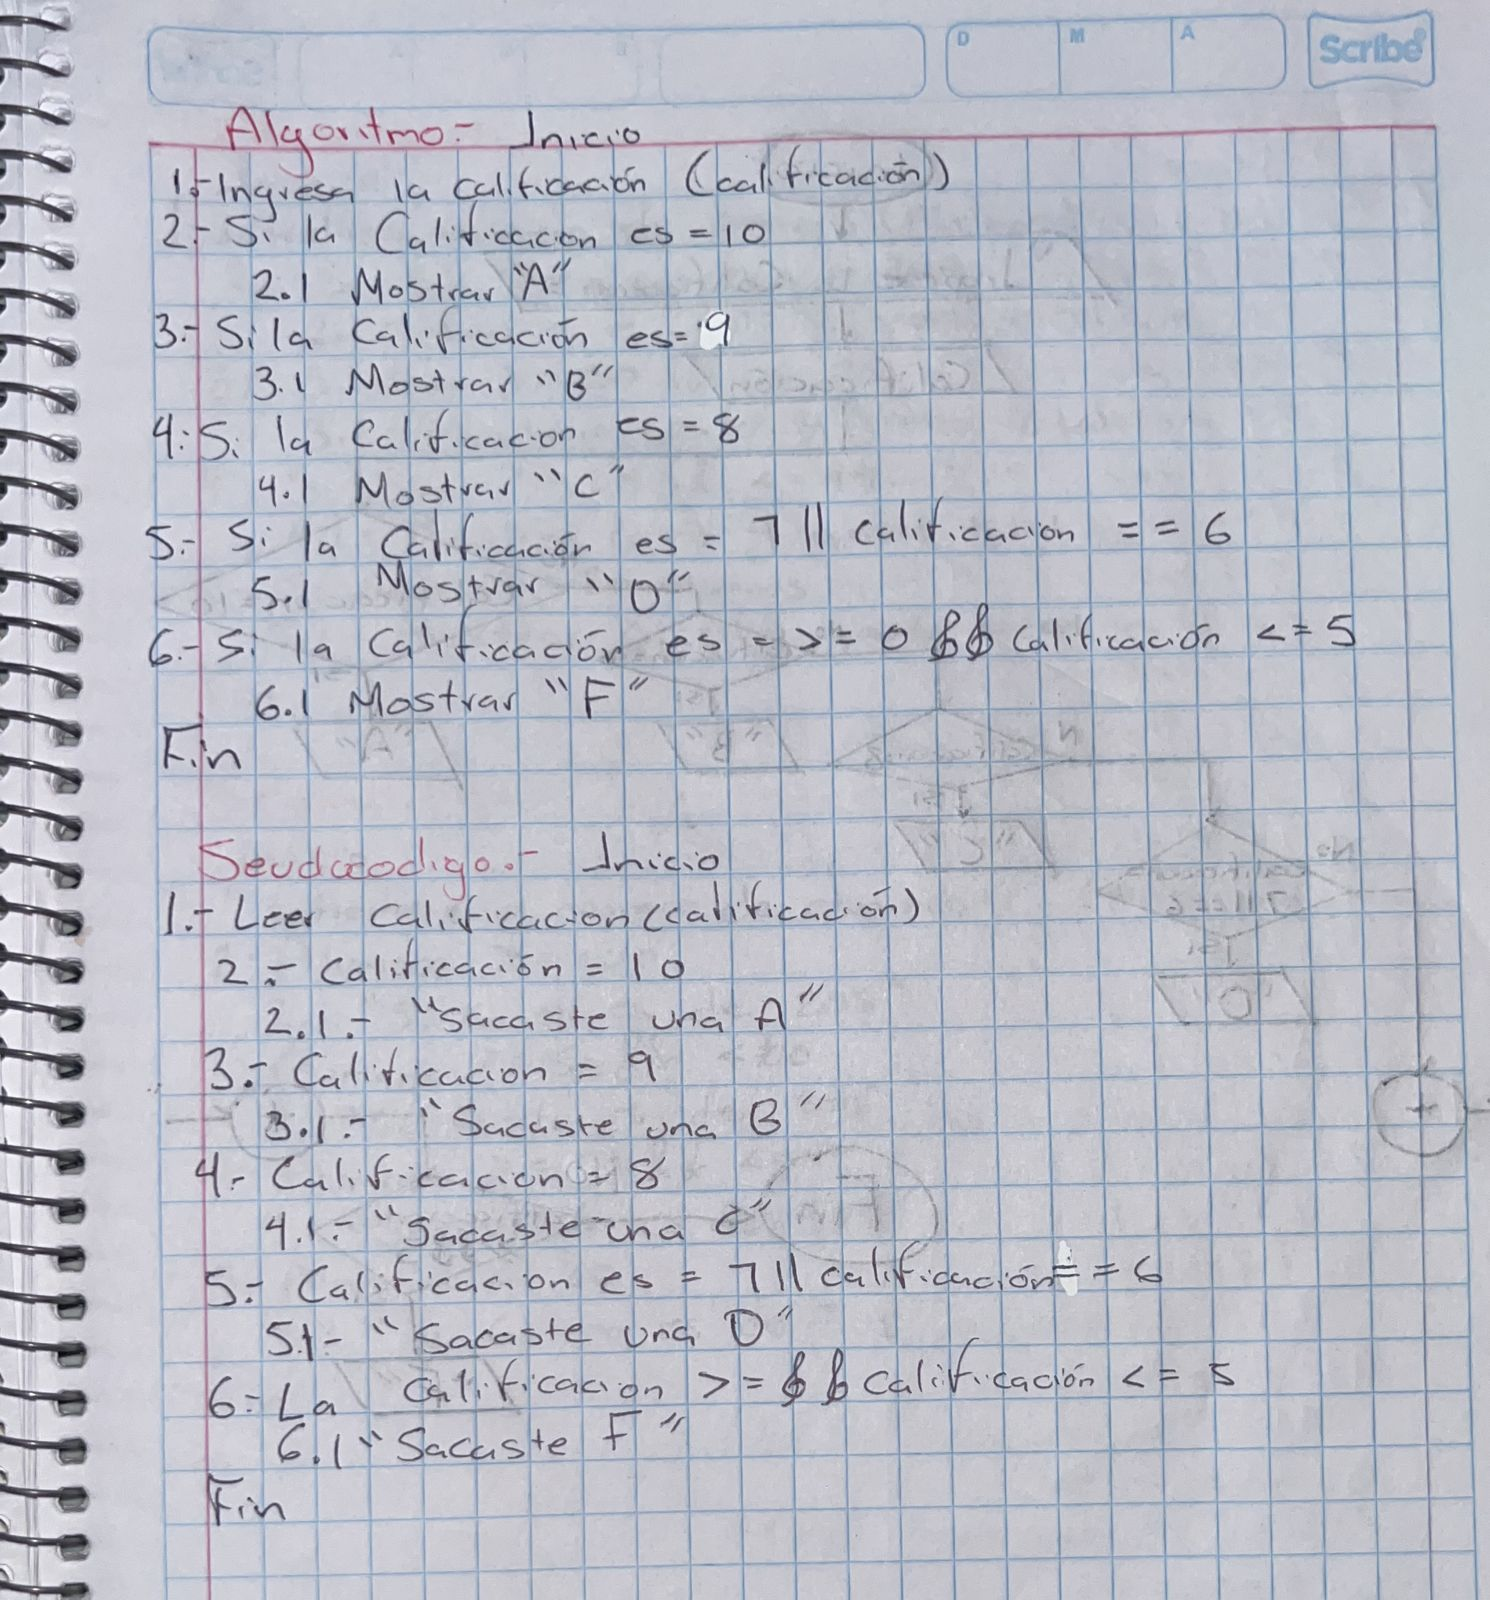 D M A Scribe
Algoritmo.- Inicio
1.- Ingresa la calificación (calificación)
2.- Si la Calificacion es = 10
2.1 Mostrar "A"
3.- Si la Calificación es = 9
3.1 Mostrar "B"
4.- Si la Calificacion es = 8
4.1 Mostrar "C"
5.- Si la Calificación es = 7 || calificacion == 6
5.1 Mostrar "D"
6.- Si la Calificación es = >= 0 && Calificación <= 5
6.1 Mostrar "F"
Fin
Seudocodigo.- Inicio
1.- Leer Calificacion (calificación)
2.- Calificación = 10
2.1.- "Sacaste una A"
3.- Calificacion = 9
3.1.- "Sacaste una B"
4.- Calificacion = 8
4.1.- "Sacaste una C"
5.- Calificacion es = 7 || calificación == 6
5.1- "Sacaste una D"
6.- La Calificacion >= && Calificación <= 5
6.1 "Sacaste F"
Fin